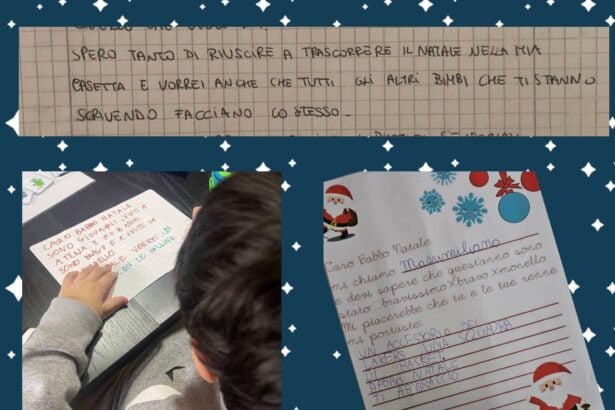 SPERO TANTO DI RIUSCIRE A TRASCORRERE IL NATALE NELLA MIA
CASETTA E VORREI ANCHE CHE TUTTI GLI ALTRI BIMBI CHE TI STANNO
SCRIVENDO FACCIANO LO STESSO.
CARO BABBO NATALE
SONO GIOVANNI VIVO A
ATENA E HO 8 ANNI
SONO BRAVO E A VOLTE
VORREI
CON LE
Caro Babbo Natale
mi chiamo Massimiliano
e devi sapere che quest'anno sono
stato: bravissimo x bravo x monello
Mi piacerebbe che tu e le tue renne
mi portaste:
UN ACCESSORIA DEI
LAKERS UNA SQUADRA
DI BASKET
BABBO NATALE
TI ABBRACCIO